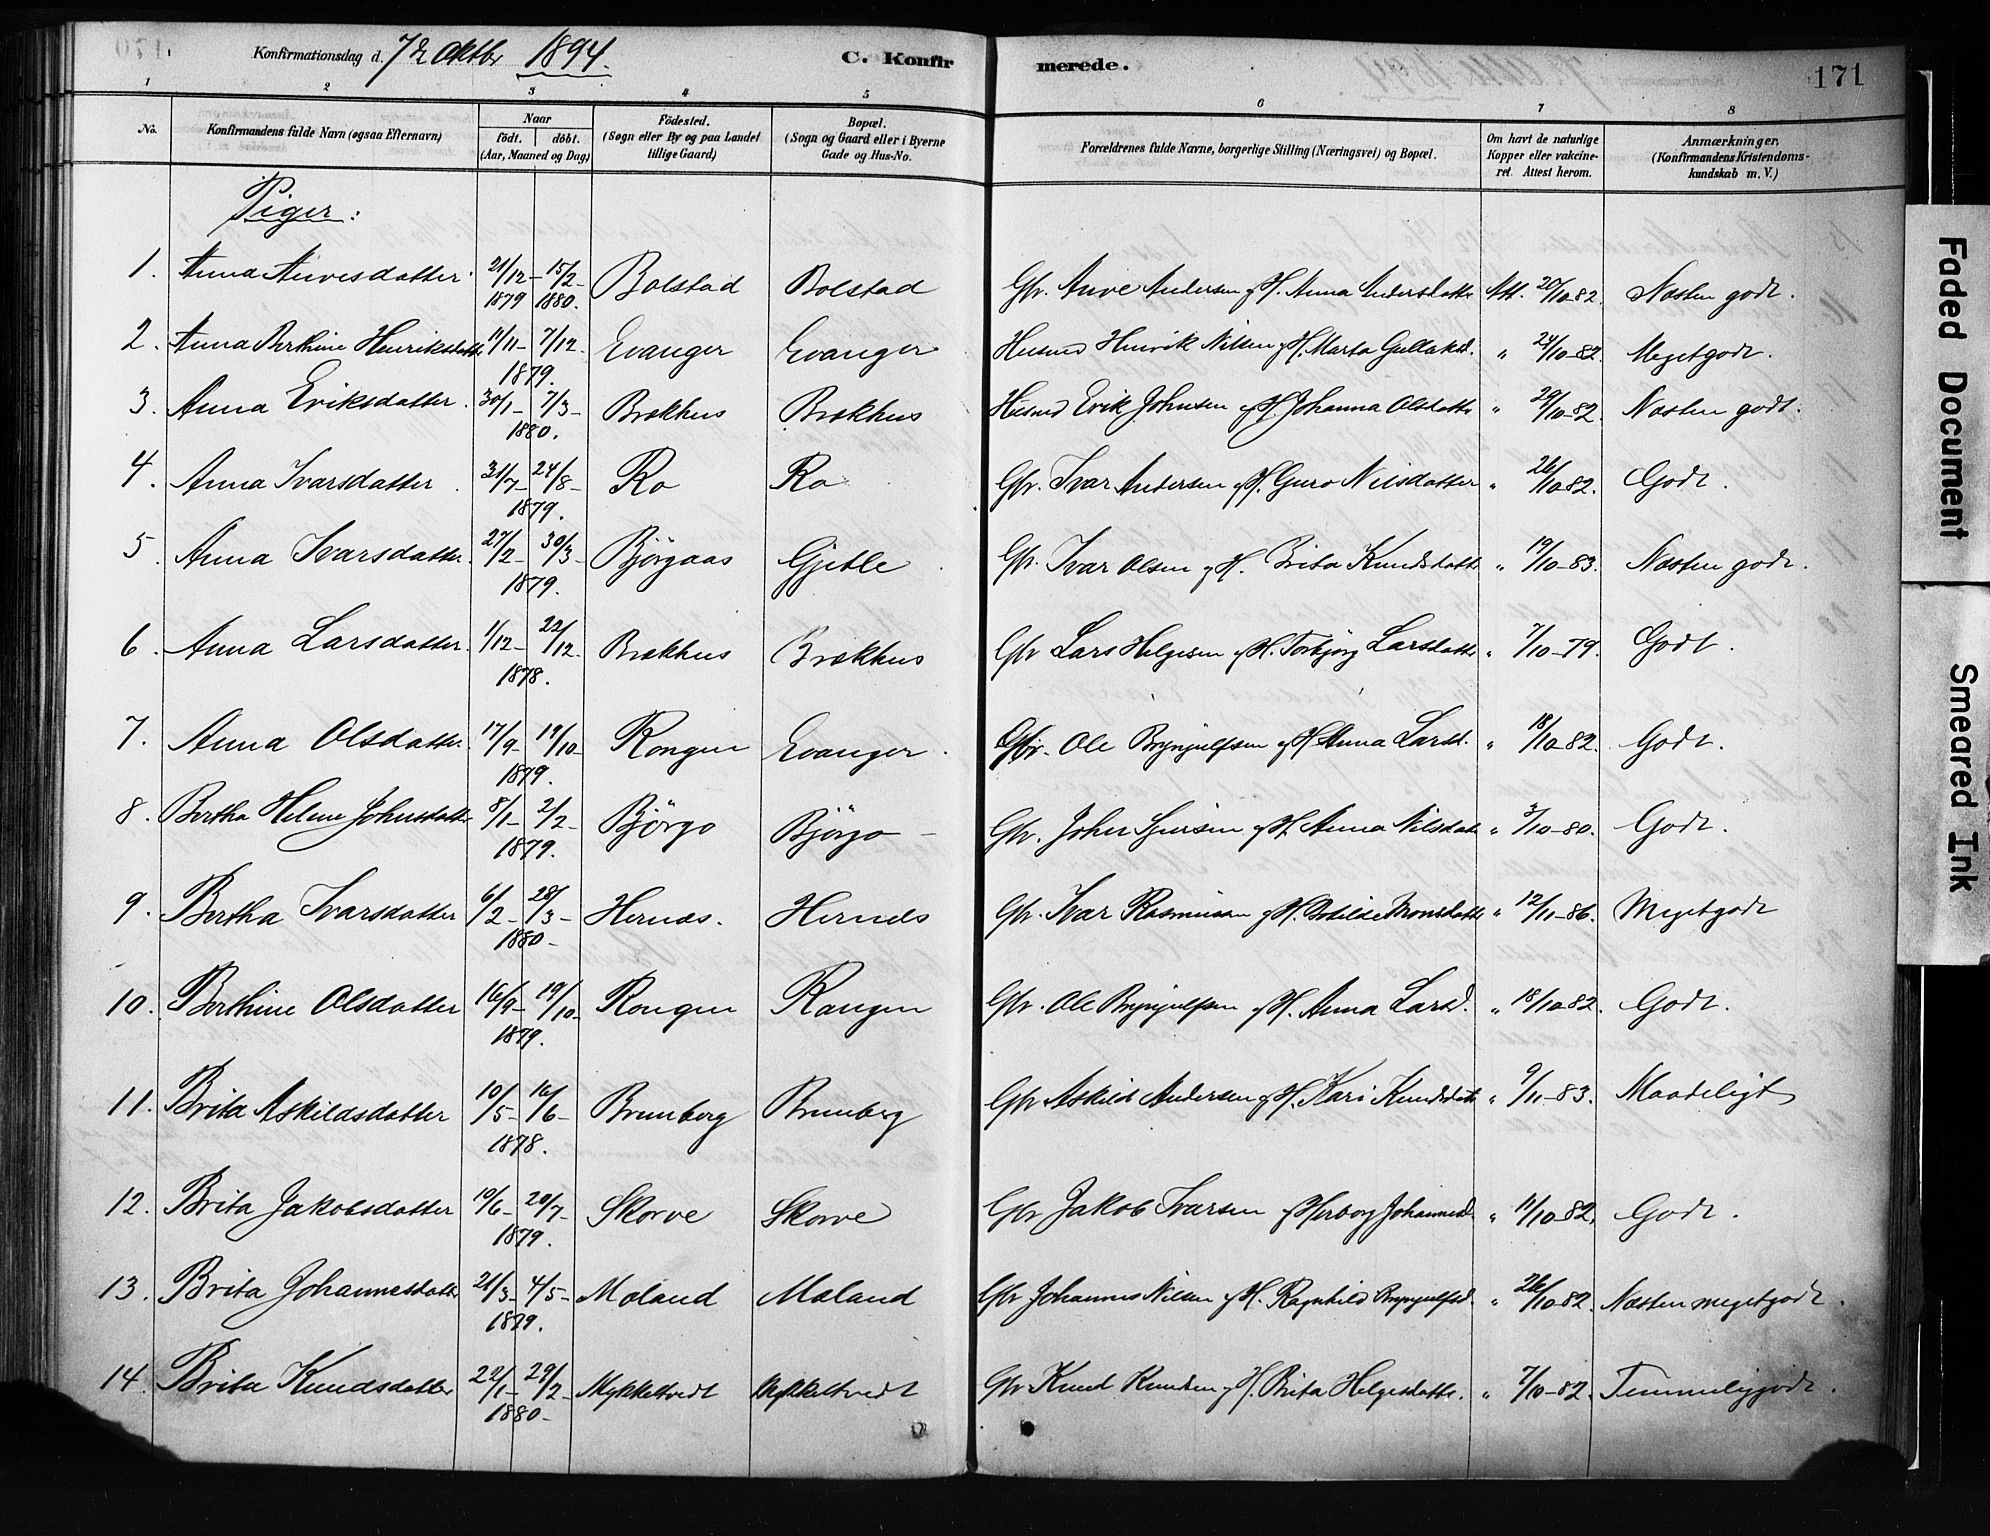 Konfirmationsdag d. 7de Oktbr 1894.
C. Konfir merede.
171
1 2 3 4 5 6 7 8
No. Konfirmandens fulde Navn (ogsaa Efternavn) Naar født. døbt. (Aar, Maaned og Dag) Fødested. (Sogn eller By og paa Landet tillige Gaard) Bopæl. (Sogn og Gaard eller i Byerne Gade og Hus-No. Forældrenes fulde Navne, borgerlige Stilling (Næringsvei) og Bopæl. Om havt de naturlige Kopper eller vakcineret. Attest herom. Anmærkninger. (Konfirmandens Kristendomskundskab m. V.)
Piger:
1. Anna Anvesdatter 21/12- 1879 15/2- 1880. Bolstad Bolstad Gbr. Anve Andersen og H. Anna Andersdatter Att. 20/10-82. Næsten godt.
2. Anna Berthine Henriksdatter 11/11- 7/12- 1879. Evanger Evanger Husmd Henrik Nilsen og H. Marta Gullaksd. " 24/10-82. Meget godt.
3. Anna Eriksdatter. 30/1- 7/3- 1880. Brækhus Brækhus Husmd Erik Johnsen og H. Johanna Olsdatter " 29/10-82. Næsten godt.
4. Anna Ivarsdatter 31/7- 24/8- 1879. Ro Ro Gbr. Ivar Andersen og H. Guro Nilsdatter " 26/10-82. Godt.
5. Anna Ivarsdatter. 27/2- 30/3- 1879. Bjørgaas Gjetle Gbr. Ivar Olsen og H. Brita Knudsdatter " 19/10-83. Næsten godt.
6. Anna Larsdatter. 1/12- 22/12- 1878. Brækhus Brækhus Gbr Lars Helgesen og H. Torbjørg Larsdatter " 7/10-79. Godt.
7. Anna Olsdatter. 17/9- 19/10- 1879. Rongen Evanger. Gbr. Ole Brynjulfsen og H. Anna Larsd. " 18/10-82. Godt.
8. Bertha Helene Johnsdatter 8/1- 2/2- 1879. Bjørgo Bjørgo Gbr. John Sjursen og H. Anna Nilsdatt " 3/10-80. Godt.
9. Bertha Ivarsdatter 6/2- 28/3- 1880- Hernæs. Hernæs Gbr. Ivar Rasmusson og H. Botilde Monsdatter " 12/11-86. Meget godt
10. Berthine Olsdatter 16/9- 19/10- 1879. Rongen Rongen Gbr. Ole Brynjulfsen og H. Anna Larsd. " 18/10-82. Godt.
11. Brita Askildsdatter 10/5- 16/6- 1878. Brunborg Brunborg Gbr Askild Andersen og H. Kari Knudsdatt " 9/11-83. Maadeligt
12. Brita Jakobsdatter 10/6- 20/7- 1879. Skorve Skorve Gbr Jakob Ivarsen og Herborg Johannesd. " 11/10-82. Godt.
13. Brita Johannesdatter 21/3- 4/5- 1879. Moland Moland Gbr Johannes Nilsen og H. Ragnhild Brynjulfsd. " 26/10-82. Næsten meget godt.
14. Brita Knudsdatter 22/1- 29/2- 1880- Mykkeltvedt Mykkeltvedt Gbr Knud Knudsen og H. Brita Helgesdatter. " 7/10-82. Temmelig godt.
Faded Document
Smeared Ink